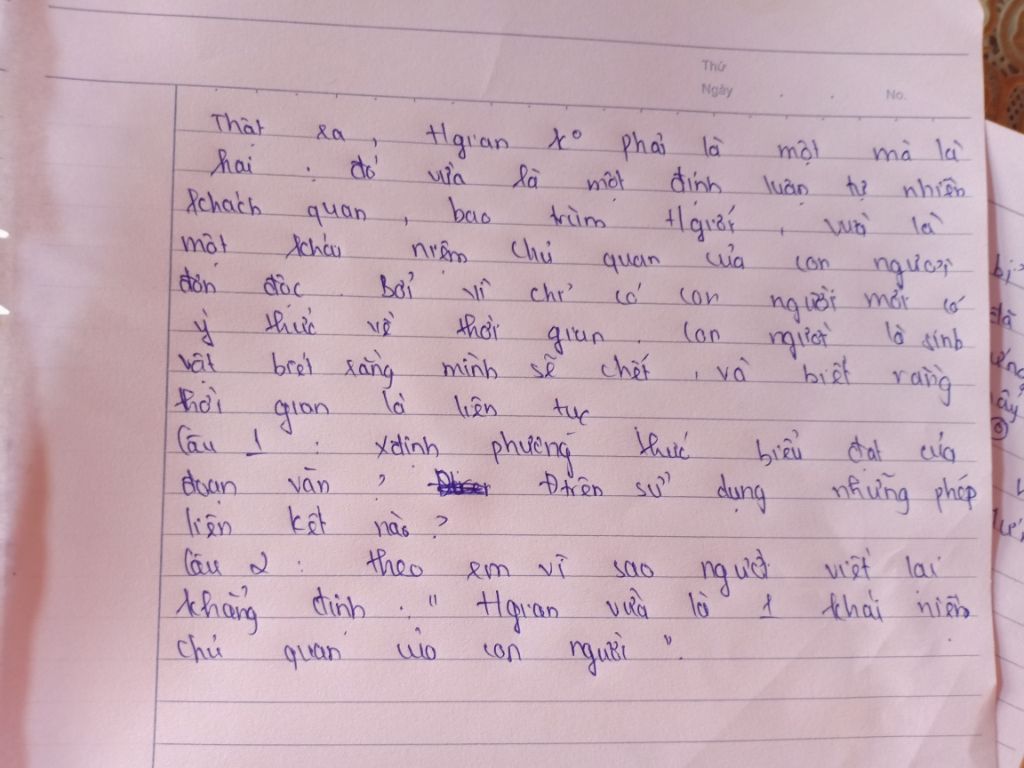 Thứ
Ngày . . No.
Thật ra, tgian ko phải là một mà là
hai : đó vừa là một định luận tự nhiên
khách quan, bao trùm tgiới, vừa là
một khái niệm chủ quan của con người
đơn độc. Bởi vì chỉ có con người mới có
ý thức về thời gian. Con người là sinh
vật biết rằng mình sẽ chết, và biết rằng
thời gian là liên tục
Câu 1 : xđịnh phương thức biểu đạt của
đoạn văn ? Đtrên sử dụng những phép
liên kết nào ?
Câu 2 : theo em vì sao người viết lại
khẳng định : " tgian vừa là 1 khái niệm
chủ quan của con người ".